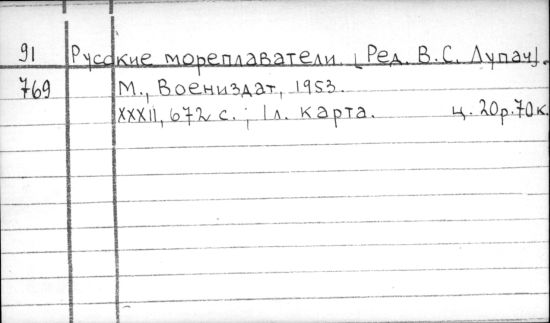 91 Русские мореплаватели. [Ред. В.С. Лупач].
769 М., Воениздат, 1953.
XXXII, 672 с.; 1 л. карта. ц. 20р.70к.